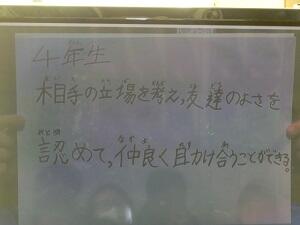 4年生
相手の立場を考え、友達のよさを
認めて、仲良く助け合うことができる。